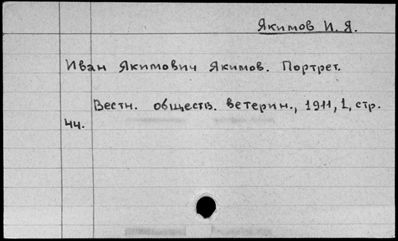 Якимов И. Я.
Иван Якимович Якимов. Портрет.
Вестн. обществ. ветерин., 1911, 1, стр.
44.